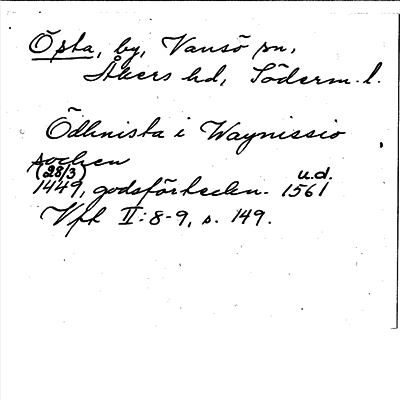 Öpta, by, Vansö sn,
Åkers hd, Söderm. l.
Ödhnista i Waynissio
sochen
(28/3) u.d.
1449, godsförteckn. 1561
Vfk II:8-9, s. 149.